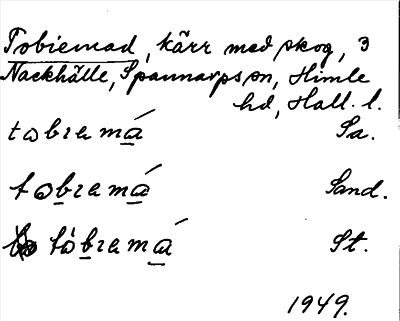 Tobiemad, kärr med skog, 3
Nackhälle, Spannarps sn, Himle
hd, Hall. l.
tobιamá Sa.
tobιamá Sand.
tòbιamá St.
1949.